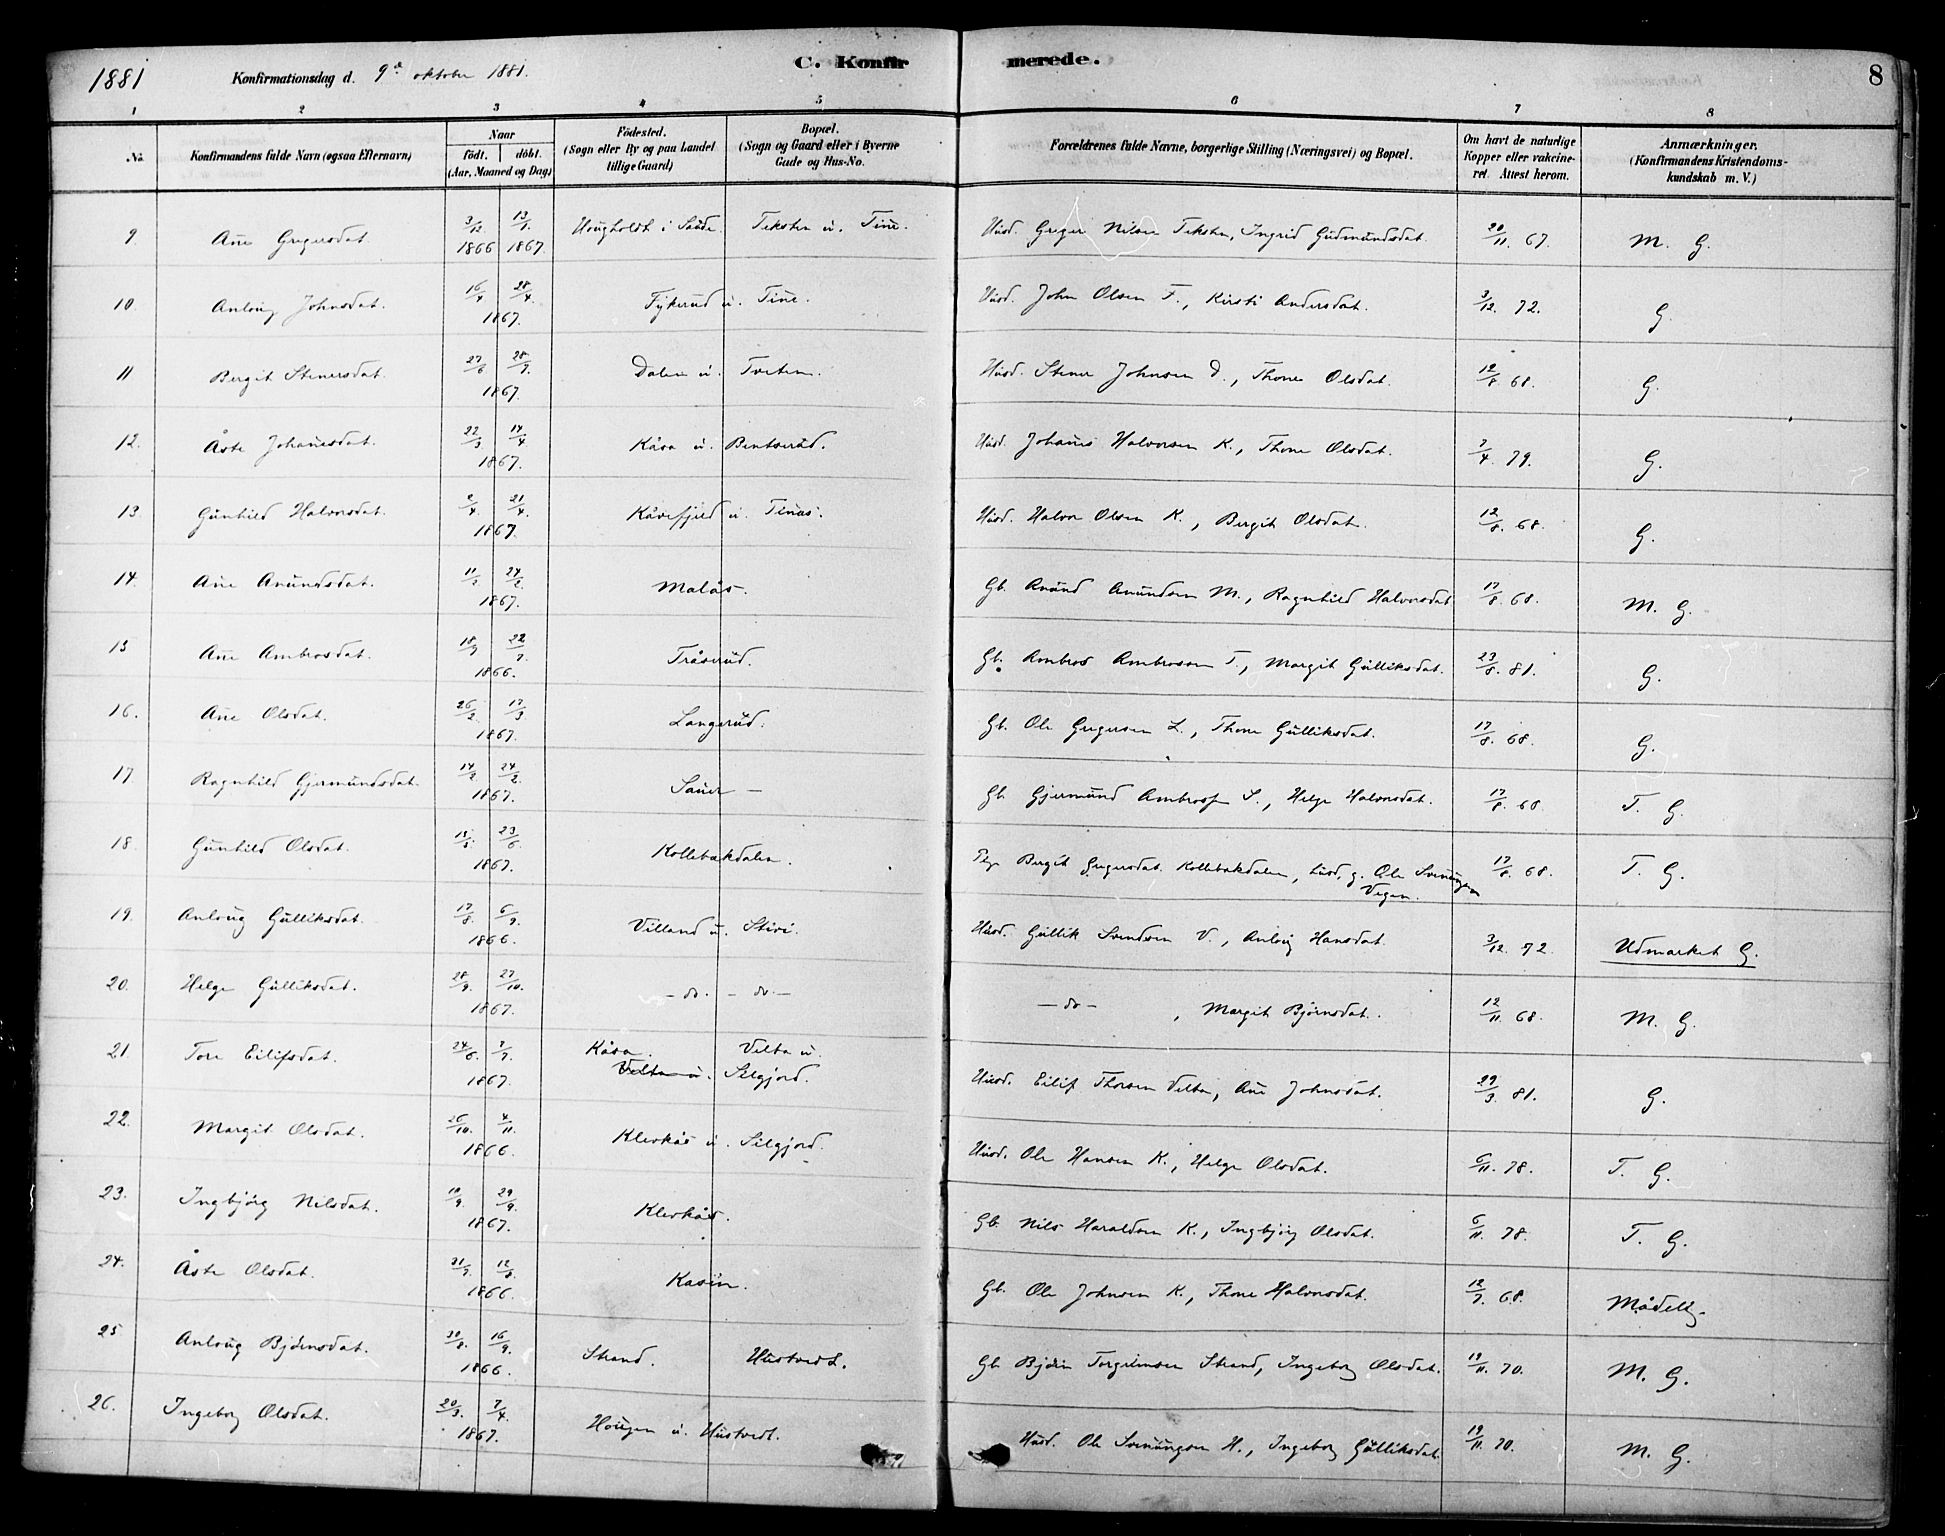 1881 Konfirmationsdag d. 9de oktober 1881. C. Konfirmerede. 8
1 2 3 4 5 6 7 8
No. Konfirmandens fulde Navn (ogsaa Efternavn) Naar født. døbt. (Aar, Maaned og Dag) Födested. (Sogn eller By og paa Landet tillige Gaard) Bopæl. (Sogn og Gaard eller i Byerne Gade og Hus-No. Forældrenes fulde Navne, borgerlige Stilling (Næringsvei) og Bopæl. Om havt de naturlige Kopper eller vakcineret. Attest herom. Anmærkninger. (Konfirmandens Kristendomskundskab m. V.)
9. Ane Gregersdat. 3/12 1866 13/1 1867. Hougholdt i Saude Teksten u. Tine. Husd. Greger Nilsen Teksten, Ingrid Gudmundsdat. 20/11. 67. M. G.
10 Anlaug Johnsdat. 16/4 28/4. 1867. Fykerud u. Tine. Husd. John Olsen F., Kirsti Andersdat. 3/12. 72. G.
11 Bergit Stenersdat. 27/6 28/7. 1867. Dalen u. Tveten. Husd. Stener Johnsen D., Thone Olsdat. 12/8 68. G.
12. Åste Johanesdat. 22/3 14/4 1867. Kåsa u. Bentserud. Husd. Johanes Halvorsen K., Thone Olsdat. 7/4. 79. G.
13. Gunhild Halvorsdat. 2/4. 21/4. 1867. Kåsefjeld u. Tinæs. Husd. Halvor Olsen K., Bergit Olsdat. 12/8. 68. G.
14. Ane Anundsdat. 24/2 1867. Malås. Gb. Anund Anundsen M., Ragnhild Halvorsdat 17/8. 68. M. G.
15 Ane Ambrosdat. 1866. Tråserud. Gb. Ambros Ambrosen T., Margit Gulliksdat. 23/8. 81. G.
16. Ane Olsdat. 26/2 17/3 1867. Langerud. Gb. Ole Gregersen L., Thone Gulliksdat. 17/8. 68. G.
17. Ragnhild Gjermundsdat. 14/2 24/2. 1867. Sauer — Gb. Gjermund Ambros S., Helge Halvorsdat. 17/8. 68. T. G.
18. Gunhild Olsdat. 23/6 1867. Kollebækdalen. Pige Bergit Gregersdat. Kollebækdalen, Husd. g. Ole Svenungsen Vegen. 17/8. 68. T. G.
19. Anlaug Gulliksdat. 17/8. 6/9. 1866. Villand u. Stivi. Husd. Gullik Svendsen V., Anlaug Hansdat. 3/12. 72. Udmærket G.
20. Helge Gulliksdat. 28/9. 27/10. 1867. — do. — do — — do — , Margit Bjørnsdat. 12/11 68. M. G.
21. Tore Eilifsdat. 24/6. 7/7. 1867. Kåsa. Velta u. Velta u. Silgjord. Husd. Eilif Thorsen Velta, Ane Johnsdat. 29/3. 81. G.
22. Margit Olsdat. 26/10. 4/11. 1866. Klevkås u. Silgjord. Husd. Ole Hansen K., Helge Olsdat. 6/11. 78. T. G.
23. Ingbjörg Nilsdat. 19/9. 29/9. 1867. Klevkås. Gb. Nils Haraldsen K., Ingbjörg Olsdat. 6/11. 78. T. G.
24. Åste Olsdat. 31/7. 12/8. 1866. Kasin. Gb. Ole Johnsen K., Thone Halvorsdat. 12/7. 68. Mådelig.
25 Anlaug Björnsdat. 30/8. 16/9. 1866. Strand. Hustvedt. Gb. Björn Torgrimsen Strand, Ingeborg Olsdat. 19/11. 70. M. G.
26. Ingeborg Olsdat. 20/3. 7/4. 1867. Hougen u. Hustvedt. Husd. Ole Svenungsen H., Ingeborg Gulliksdat. 19/11. 70. M. G.